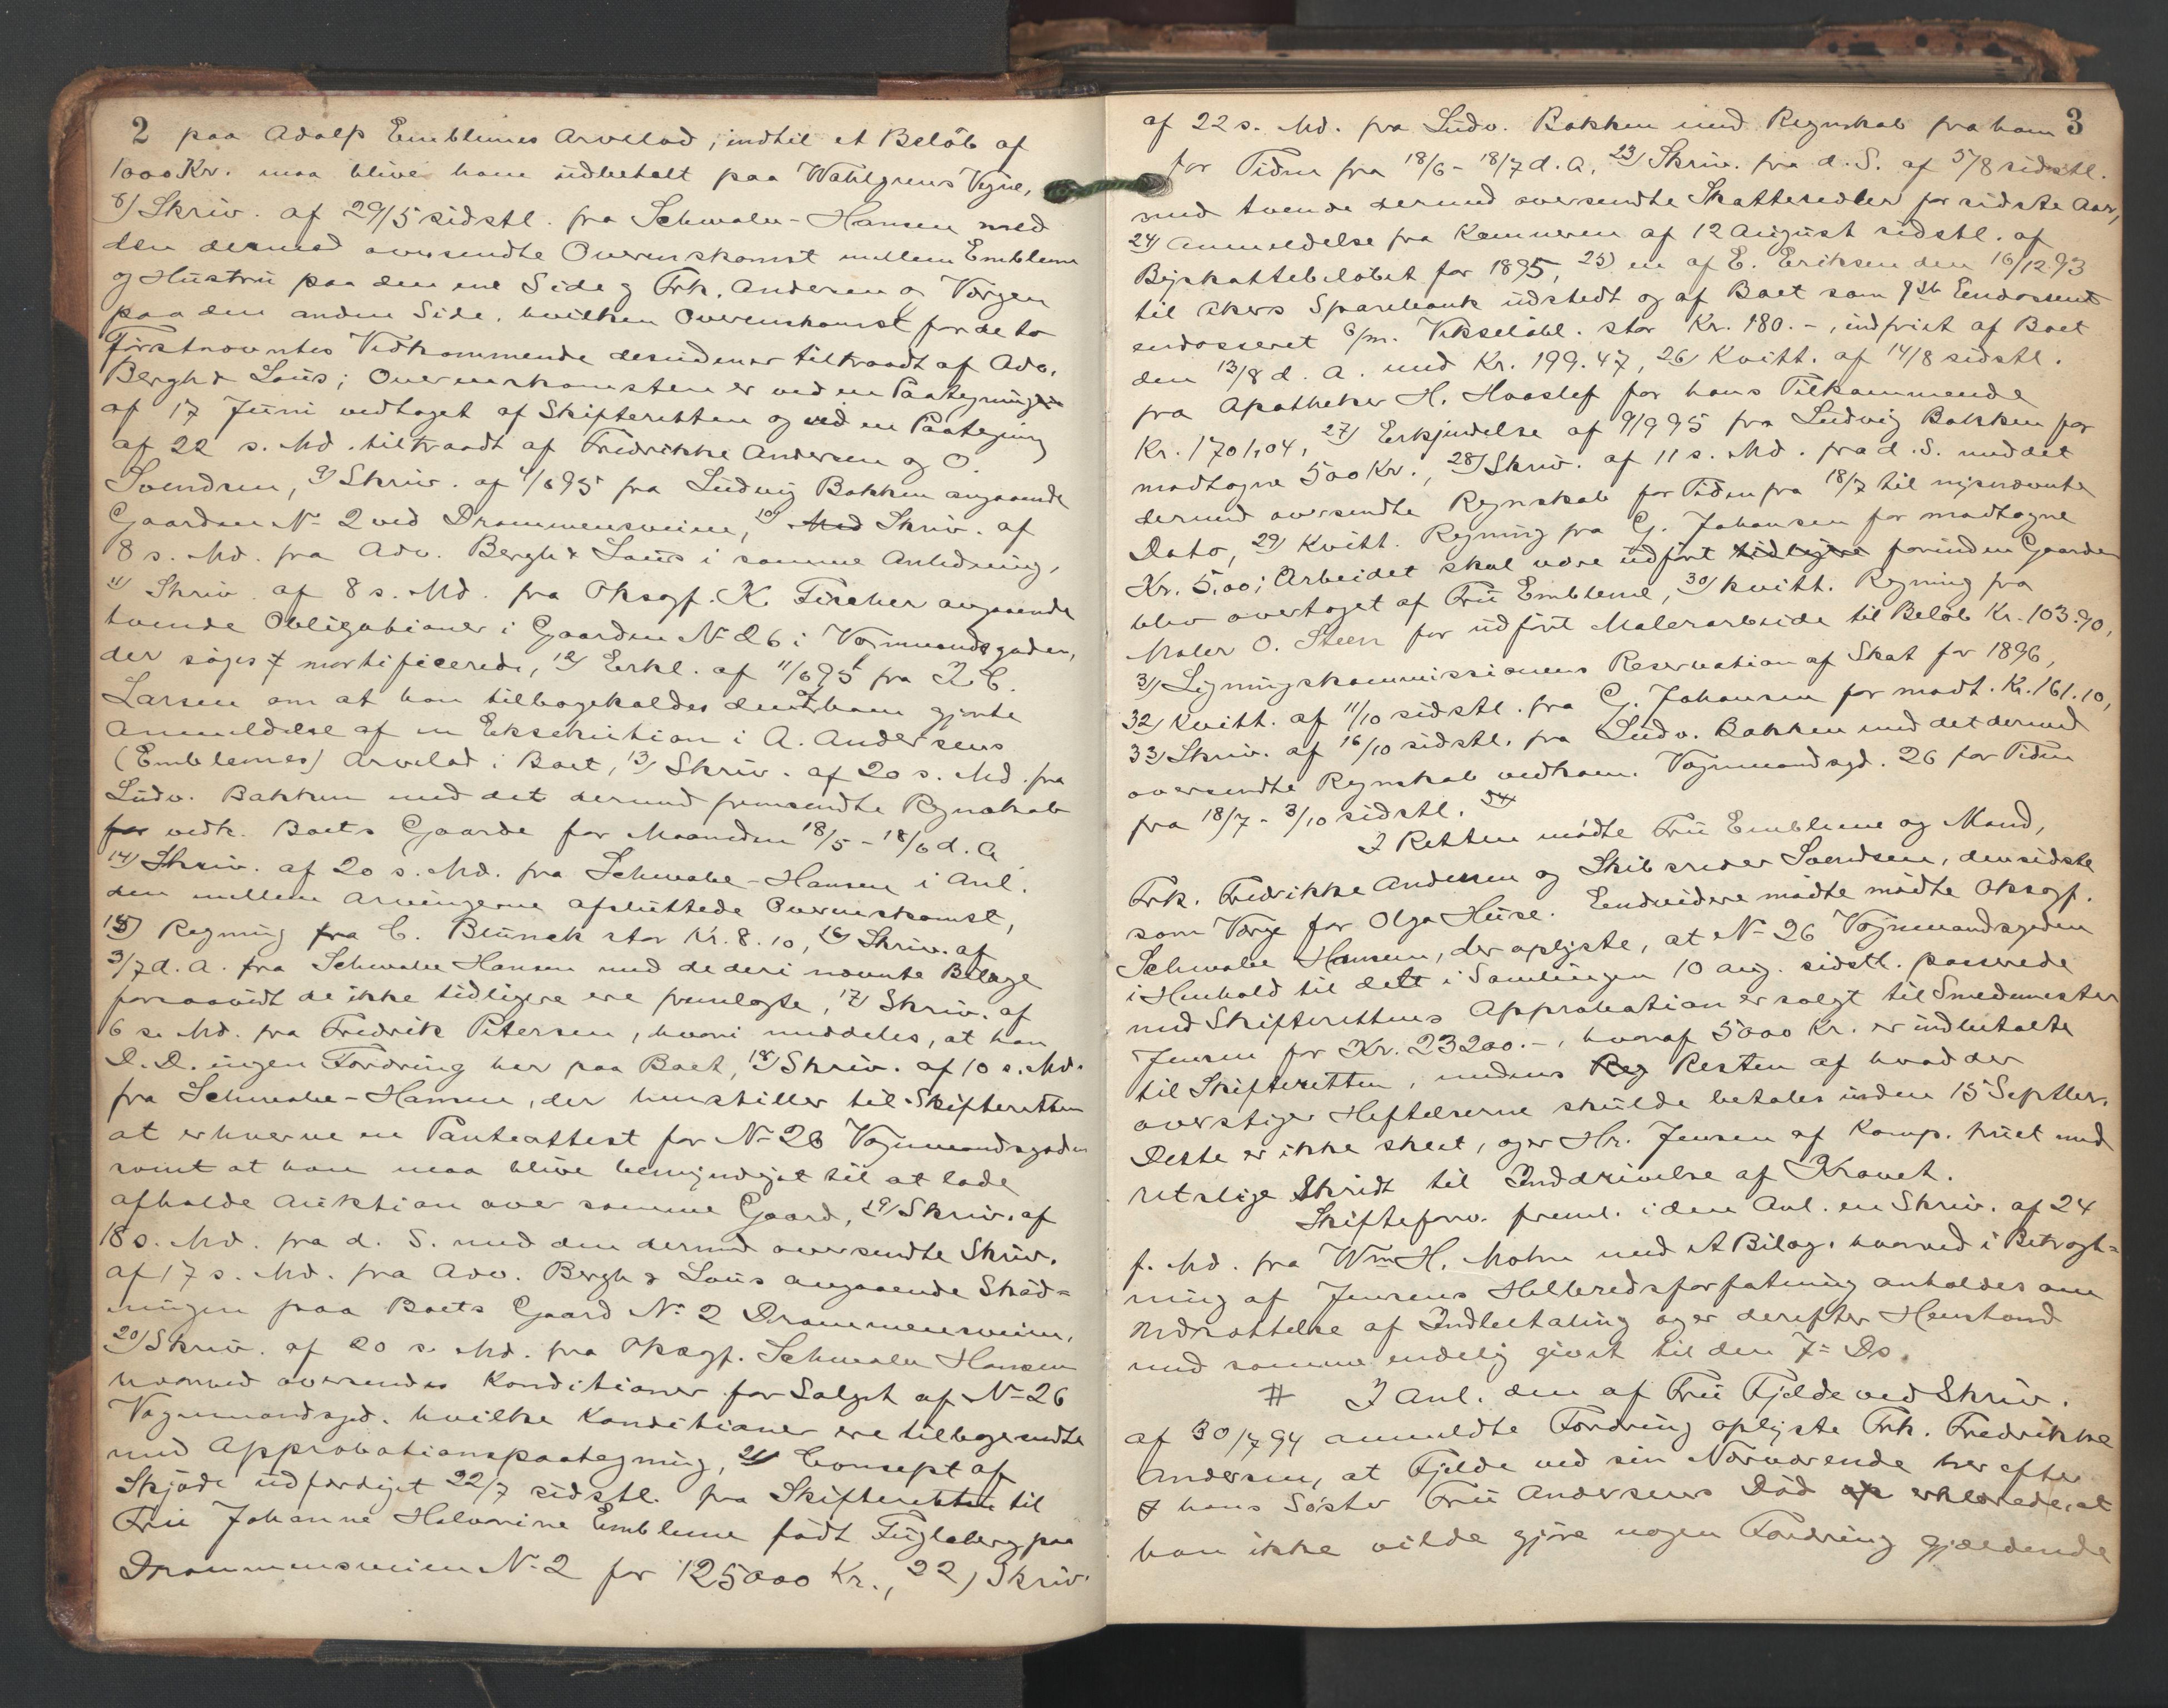 2
paa Adolf Emblemes Arvelod, indtil et Beløb af
1000 Kr. maa blive ham udbetalt paa Wahlgrens Vegne,
8) Skriv. af 29/5 sidstl. fra Schwabe-Hansen med
den dermed oversendte Overenskomst mellem Embleme
og Hustru paa den ene Side og Frk. Andersen og Værgen
paa den anden Side, hvilken Overenskomst for de to
Førstnævntes Vedkommende desuden er tiltraadt af Adv.
Bergh & Lous; Overenskomsten er ved en Paategning
af 17 Juni vedtaget af Skifteretten og ved en Paategning
af 22 s. Md. tiltraadt af Fredrikke Andersen og O.
Svendsen, 9) Skriv. af 4/6 95 fra Ludvig Bakken angaaende
Gaarden No 2 ved Drammensveien, 10) Med Skriv. af
8 s. Md. fra Adv. Bergh & Lous i samme Anledning,
11) Skriv. af 8 s. Md. fra Oksagf. K. Fischer angaaende
tvende Obligationer i Gaarden No 26 i Vognmandsgaden,
der søges mortificerede, 12) Erkl. af 11/6 95 fra I. C.
Larsen om at han tilbagekalder den af ham gjorte
Anmeldelse af en Eksekution i A. Andersens
(Emblemes) Arvelod i Boet, 13) Skriv. af 20 s. Md. fra
Ludv. Bakken med det dermed fremsendte Regnskab
for vedk. Boets Gaarde for Maaneden 18/5 - 18/6 d. A.
14) Skriv. af 20 s. Md. fra Schwabe-Hansen i Anl.
den mellem Arvingerne afsluttede Overenskomst,
15) Regning fra C. Brunck stor Kr. 8.10, 16) Skriv. af
3/7 d. A. fra Schwabe Hansen med de deri nævnte Bilage
forsaavidt de ikke tidligere ere fremlagte, 17) Skriv. af
6 s. Md. fra Fredrik Petersen, hvori meddeles, at han
D. D. ingen Fordring har paa Boet, 18) Skriv. af 10 s. Md.
fra Schwabe-Hansen, der henstiller til Skifteretten
at erhverve en Panteattest for No 26 Vognmandsgaden
samt at han maa blive bemyndiget til at lade
afholde Auktion over samme Gaard, 19) Skriv. af
18 s. Md. fra d. S. med den dermed oversendte Skriv.
af 17 s. Md. fra Adv. Bergh & Lous angaaende Skød-
ningen paa Boets Gaard No 2 Drammensveien,
20) Skriv. af 20 s. Md. fra Oksagf. Schwabe Hansen
hvorved oversendes Konditioner for Salget af No 26
Vognmandsgd. hvilke Konditioner ere tilbagesendte
med Approbationspaategning, 21) Consept af
Skjøde udfærdiget 22/7 sidstl. fra Skifteretten til
Fru Johanne Halvorine Embleme født Fugleberg paa
Drammensveien No 2 for 125000 Kr., 22) Skriv.
3
af 22 s. Md. fra Ludv. Bakken med Regnskab fra ham
for Tiden fra 18/6 - 18/7 d. A., 23) Skriv. fra d. S. af 5/8 sidstl.
med tvende dermed oversendte Skattesedler for sidste Aar,
24) Anmeldelse fra Kæmneren af 12 August sidstl. af
Byskattebeløbet for 1895, 25) en af E. Eriksen den 16/12 93
til Akers Sparebank udstedt og af Boet som Endossent
endosseret 6/m. Vekselobl. stor Kr. 180.-, indfriet af Boet
den 13/8 d. A. med Kr. 199.47, 26) Kvitt. af 14/8 sidstl.
fra Apotheker H. Haaslef for hans Tilkommende
Kr. 1701,04, 27) Erkjendelse af 9/9 95 fra Ludvig Bakken for
modtagne 500 Kr., 28) Skriv. af 11 s. Md. fra d. S. med det
dermed oversendte Regnskab for Tiden fra 18/7 til nysnævnte
Dato, 29) Kvitt. Regning fra G. Johansen for modtagne
Kr. 5,00; Arbeidet skal være udført tidligere forinden Gaarden
blev overtaget af Fru Embleme, 30) Kvitt. Regning fra
Maler O. Steen for udført Malerarbeide til Beløb Kr. 103.90,
31) Ligningskommissionens Reservation af Skat for 1896,
32) Kvitt. af 11/10 sidstl. fra G. Johansen for modt. Kr. 161.10,
33) Skriv. af 16/10 sidstl. fra Ludv. Bakken med det dermed
oversendte Regnskab vedkom. Vognmandsgd. 26 for Tiden
fra 18/7 - 3/10 sidstl. 34
I Retten mødte Fru Embleme og Mand,
Frk. Fredrikke Andersen og Skibsreder Svendsen, den sidste
som Værge for Olga Huse. Endvidere mødte mødte Oksagf.
Schwabe Hansen, der oplyste, at No 26 Vognmandsgaden
i Henhold til det i Samlingen 10 Aug. sidstl. passerede
med Skifterettens Approbation er solgt til Smedemester
Jensen for Kr. 23200.-, hvoraf 5000 Kr. er indbetalte
til Skifteretten, medens Reg Resten af hvad der
overstiger Heftelserne skulde betales inden 15 Septbr.
Dette er ikke skeet, og er Hr. Jensen af Komp. truet med
retslige Skridt til Inddrivelse af Kravet.
Skifteforv. freml. i den Anl. en Skriv. af 24
f. Md. fra Wm H. Mohn med et Bilag, hvorved i Betragt-
ning af Jensens Helbredsforfatning anholdes om
Udsættelse af Indbetaling og er derefter Henstand
med samme endelig givet til den 7de Ds.
# I Anl. den af Fru Fjelde ved Skriv.
af 30/7 94 anmeldte Fordring oplyste Frk. Fredrikke
Andersen, at Fjelde ved sin Nærværende her efter
hans Søster Fru Andersens Død erklærede, at
han ikke vilde gjøre nogen Fordring gjældende